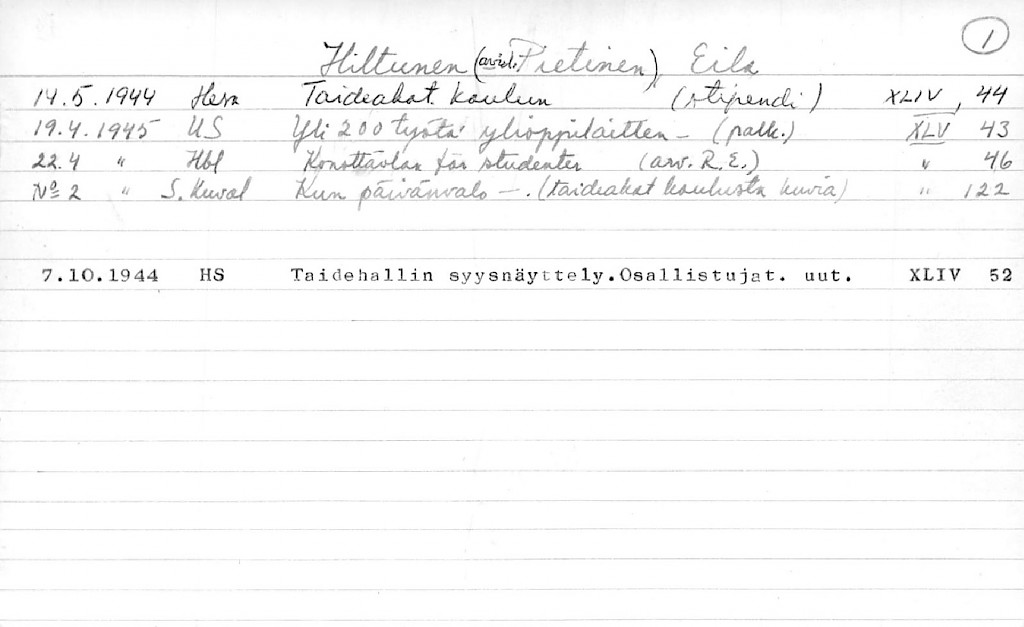 1
Hiltunen (aviol. Pietinen), Eila
14.5.1944 Hesa Taideakat. koulun (stipendi) XLIV, 44
19.4.1945 US Yli 200 työtä ylioppilaitten - (palk.) XLV 43
22.4 " Hbl Konsttävlan för studenter (arv. R.E.) " 46
No 2 " S. Kuval Kun päivänvalo -. (taideakat koulusta kuvia) " 122
7.10.1944 HS Taidehallin syysnäyttely.Osallistujat. uut. XLIV 52